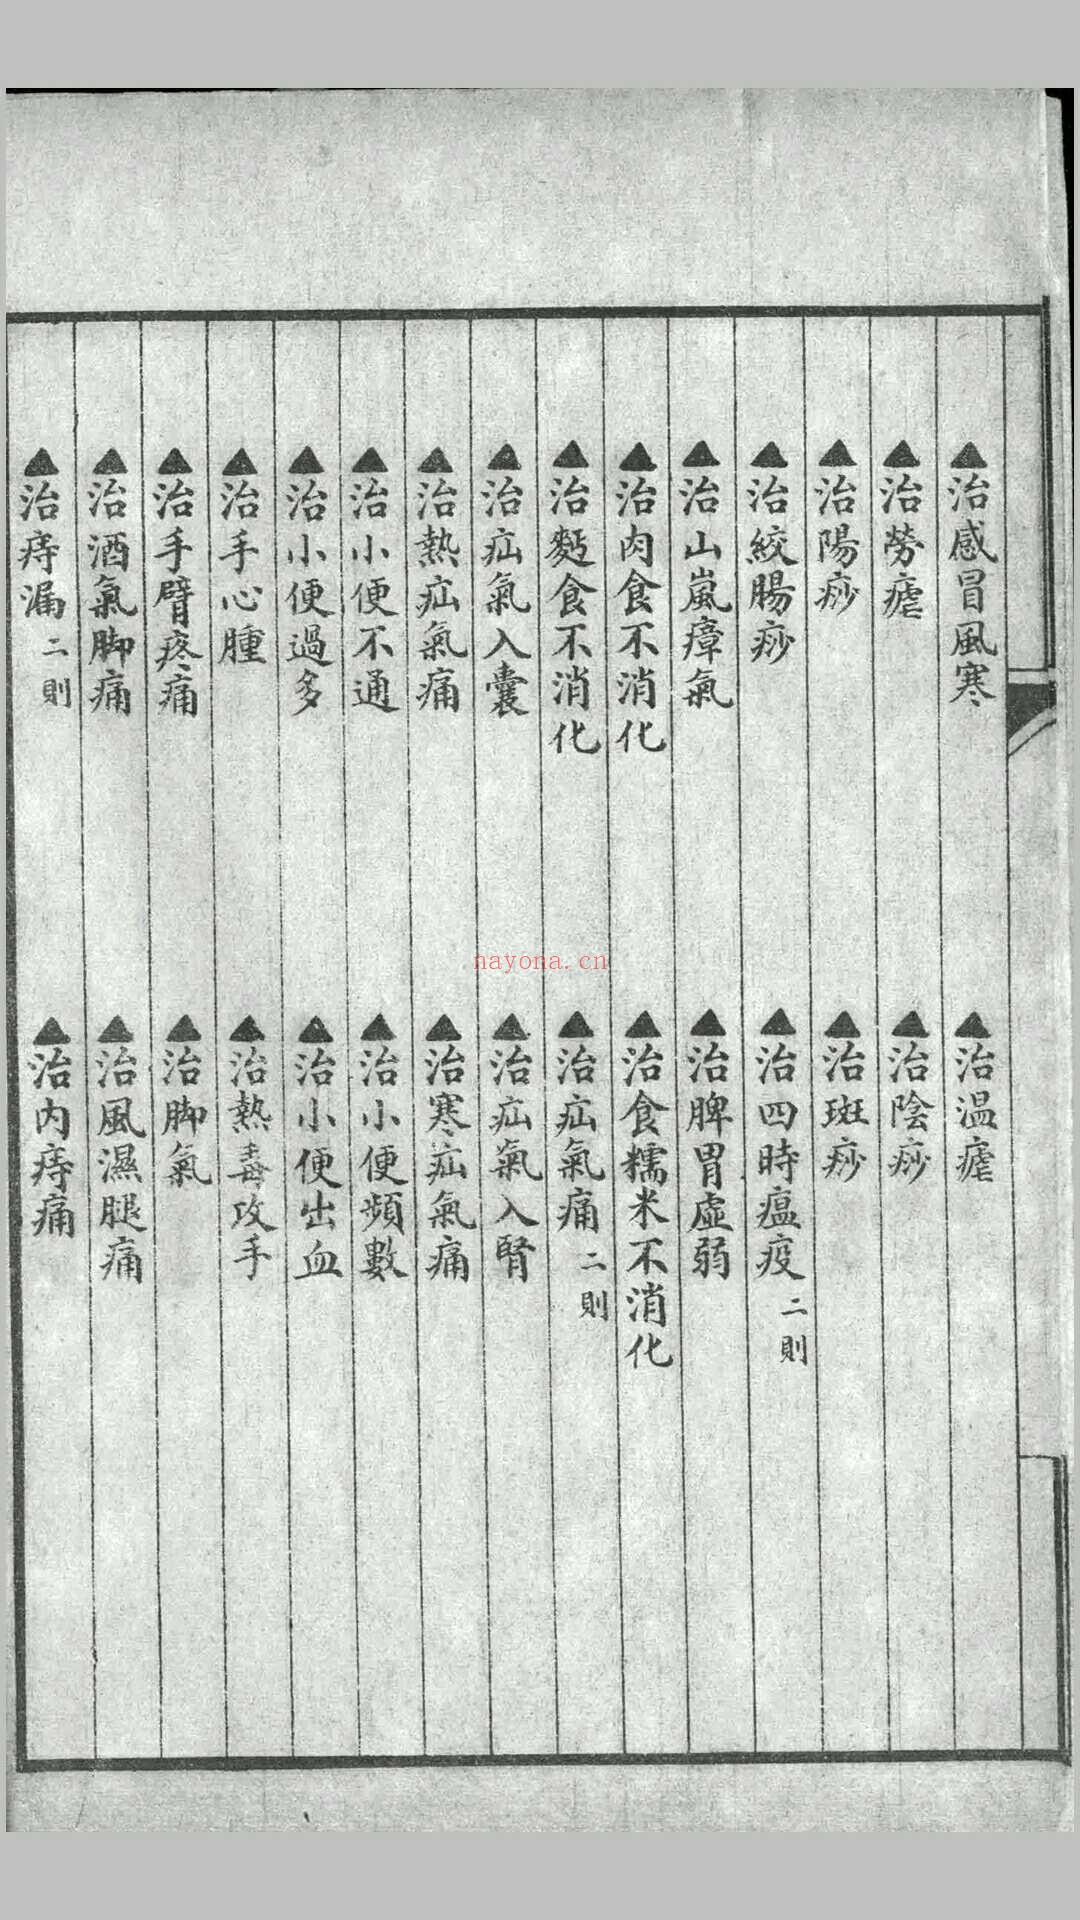 ▲治感冒風寒 ▲治温瘧
▲治勞瘧 ▲治陰痧
▲治陽痧 ▲治斑痧
▲治絞腸痧 ▲治四時瘟疫二則
▲治山嵐瘴氣 ▲治脾胃虛弱
▲治肉食不消化 ▲治食糯米不消化
▲治麪食不消化 ▲治疝氣痛二則
▲治疝氣入囊 ▲治疝氣入腎
▲治熱疝氣痛 ▲治寒疝氣痛
▲治小便不通 ▲治小便頻數
▲治小便過多 ▲治小便出血
▲治手心腫 ▲治熱毒攻手
▲治手臂疼痛 ▲治脚氣
▲治酒氣脚痛 ▲治風濕腿痛
▲治痔漏二則 ▲治内痔痛
nayona.cn